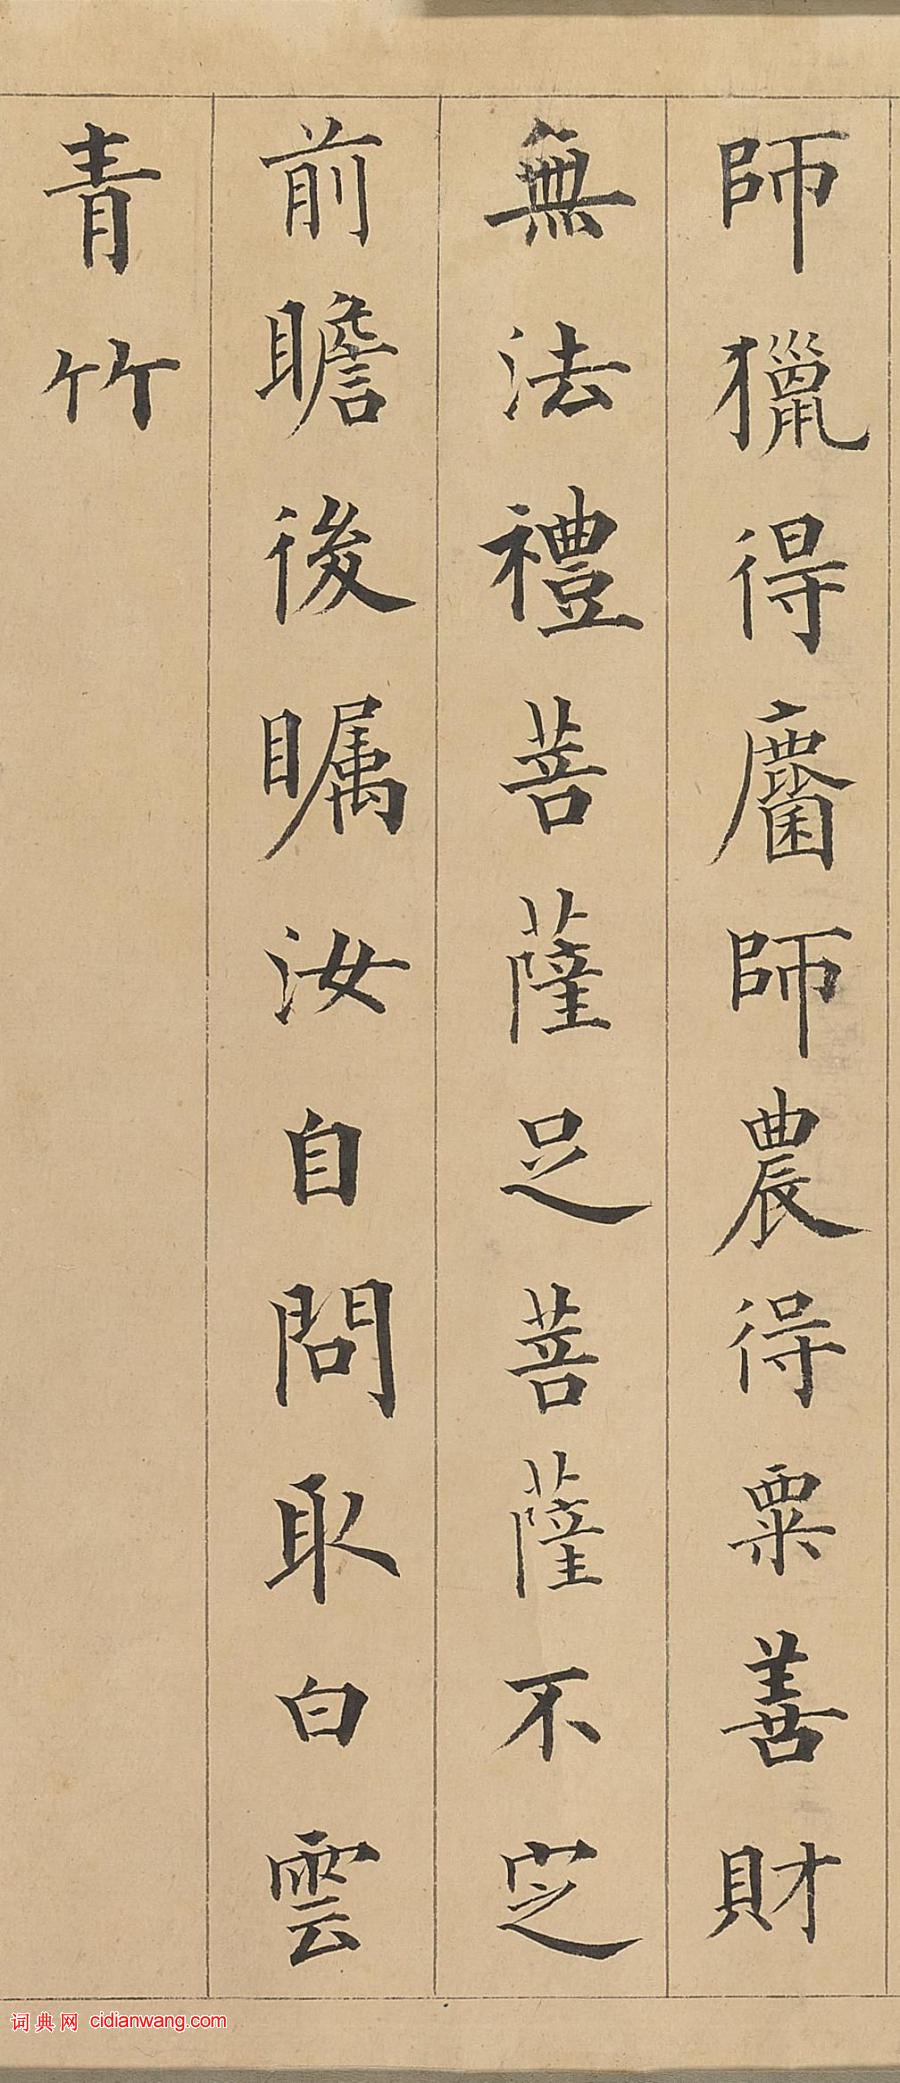 師獵得麕師農得粟善財
無法禮菩薩足菩薩不定
前瞻後矚汝自問取白雲
青竹
词典网 cidianwang.com